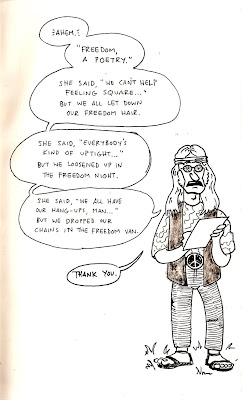 :AHEM.:
"FREEDOM,
A POETRY."
SHE SAID, "WE CAN'T HELP
FEELING SQUARE..."
BUT WE ALL LET DOWN
OUR FREEDOM HAIR.
SHE SAID, "EVERYBODY'S
KIND OF UPTIGHT..."
BUT WE LOOSENED UP IN
THE FREEDOM NIGHT.
SHE SAID, "WE ALL HAVE
OUR HANG-UPS, MAN..."
BUT WE DROPPED OUR
CHAINS IN THE FREEDOM VAN.
THANK YOU.